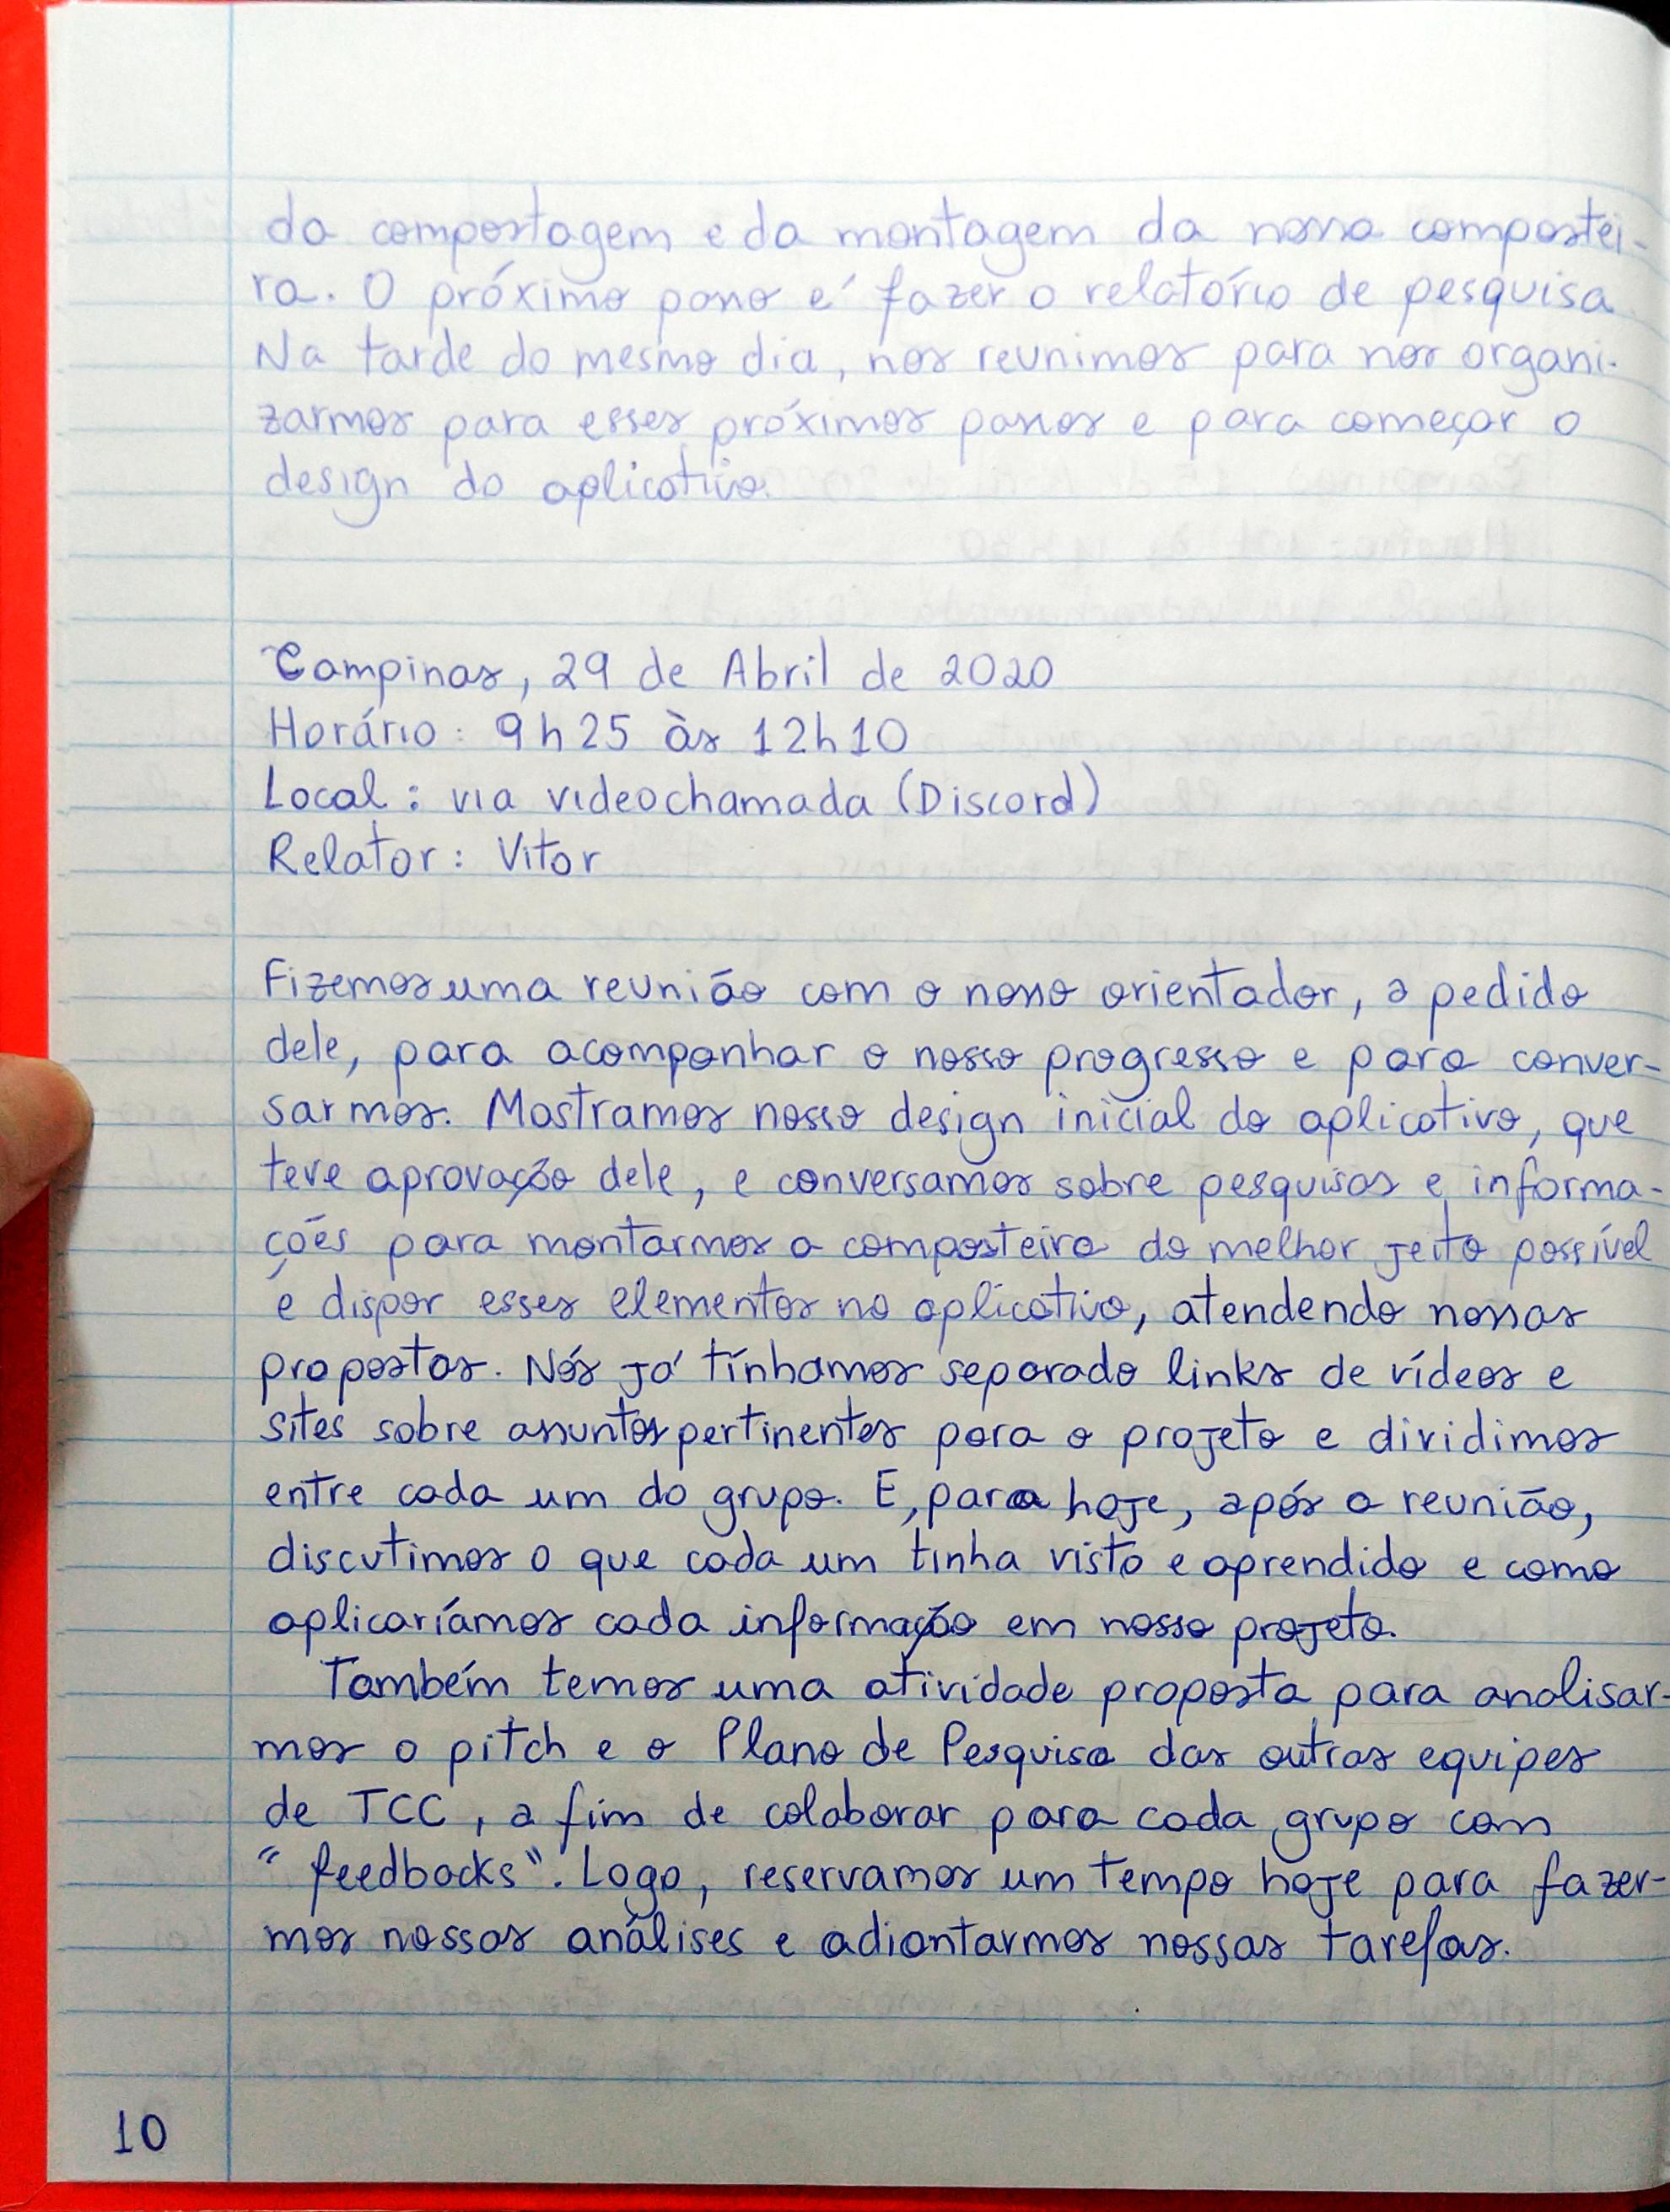 da compostagem e da montagem da nossa compostei-
ra. O próximo passo é fazer o relatório de pesquisa
Na tarde do mesmo dia, nos reunimos para nos organi-
zarmos para esses próximos passos e para começar o
design do aplicativo.
Campinas, 29 de Abril de 2020
Horário: 9h25 às 12h10
Local: via videochamada (Discord)
Relator: Vitor
Fizemos uma reunião com o nosso orientador, a pedido
dele, para acompanhar o nosso progresso e para conver-
sarmos. Mostramos nosso design inicial do aplicativo, que
teve aprovação dele, e conversamos sobre pesquisas e informa-
ções para montarmos a composteira do melhor jeito possível
e dispor esses elementos no aplicativo, atendendo nossas
propostas. Nós já tínhamos separado links de vídeos e
sites sobre assuntos pertinentes para o projeto e dividimos
entre cada um do grupo. E, para hoje, após a reunião,
discutimos o que cada um tinha visto e aprendido e como
aplicaríamos cada informação em nosso projeto.
Também temos uma atividade proposta para analisar-
mos o pitch e o Plano de Pesquisa das outras equipes
de TCC, a fim de colaborar para cada grupo com
"feedbacks". Logo, reservamos um tempo hoje para fazer-
mos nossas análises e adiantarmos nossas tarefas.
10